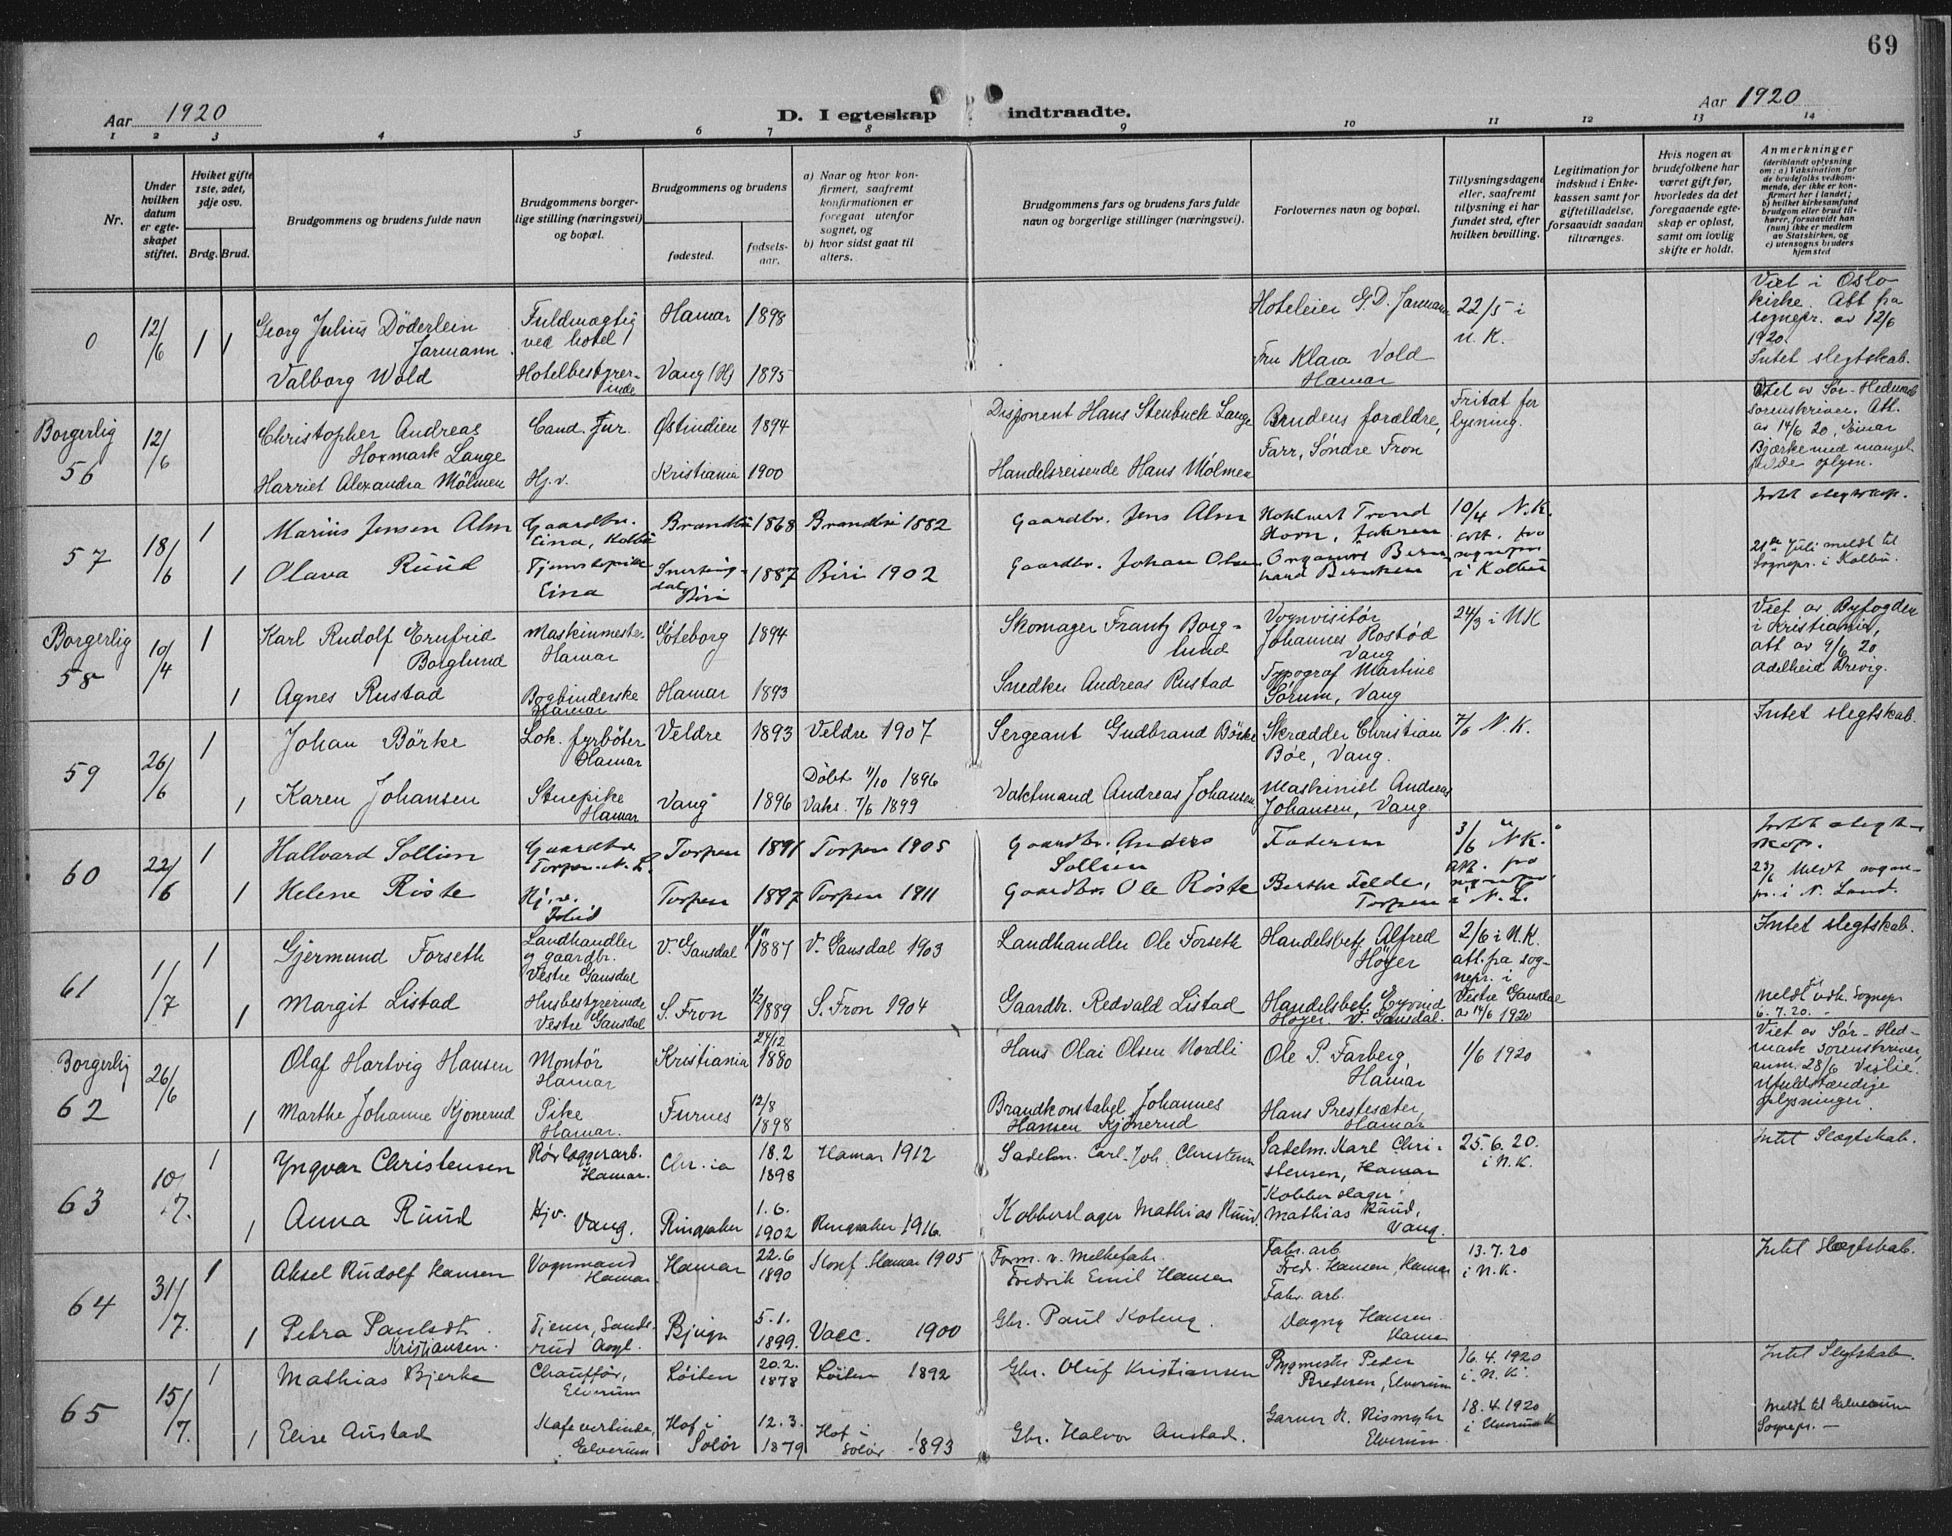 69
Aar 1920
D. I egteskap indtraadte.
Aar 1920
1 2 3 4 5 6 7 8 9 10 11 12 13 14
Nr.
Under hvilken datum er egteskapet stiftet.
Hvilket gifte 1ste, 2det, 3dje osv.
Brdg. Brud.
Brudgommens og brudens fulde navn
Brudgommens borgerlige stilling (næringsvei) og bopæl.
Brudgommens og brudens
fødested.
fødselsaar.
a) Naar og hvor konfirmert, saafremt konfirmationen er foregaat utenfor sognet, og
b) hvor sidst gaat til alters.
Brudgommens fars og brudens fars fulde navn og borgerlige stillinger (næringsvei).
Forlovernes navn og bopæl.
Tillysningsdagene eller, saafremt tillysning ei har fundet sted, efter hvilken bevilling.
Legitimation for indskud i Enkekassen samt for giftetilladelse, forsaavidt saadan tiltrænges.
Hvis nogen av brudefolkene har været gift før, hvorledes da det foregaaende egteskap er opløst, samt om lovlig skifte er holdt.
Anmerkninger
(deriblandt oplysning om: a) Vaksination for de brudefolks vedkommende, der ikke er konfirmert her i landet; b) hvilket kirkesamfund brudgom eller brud tilhører, forsaavidt han (hun) ikke er medlem av Statskirken, og c) utensogns bruders hjemsted
0 12/6 1 1 Georg Julius Döderlein Jarmann Fuldmægtig ved hotel Hamar 1898 Hoteleier G. D. Jarmann 22/5 i N.K. Viet i Oslo kirke. Att fra sognepr. av 12/6 1920.
Valborg Wold Hotelbestyrerinde Vang (H) 1895 Fru Klara Vold Hamar Intet slegtskab.
Borgerlig 56 12/6 Christopher Andreas Hoxmark Lange Cand. Jur. Østindien 1894 Disponent Hans Stenbuck Lange Brudens forældre, Farr, Søndre Fron Fritat for lysning. Viet av Sør-Hedmark sorenskriver. Att. av 14/6 20, Einar Bjærke med mangelfulde oplysn.
Harriet Alexandra Mølmen Hj.v. Kristiania 1900 Handelsreisende Hans Mølmen
57 18/6 1 Marius Jensen Alm Gaardbr. Eina, Kolbu Brandbu 1868 Brandbu 1882 Gaardbr. Jens Alm 10/4 N.K. att. fra sognepr. i Kolbu Intet slegtskap.
1 Olava Ruud Eina Biri 1887 Biri 1902 Gaardbr. Johan Olsen 21de Juli meldt til Sognepr. i Kolbu.
Borgerlig 58 10/4 1 Karl Rudolf Ernfrid Borglund Maskinmester Hamar Göteborg 1894 Skomager Frantz Borglund Vognvisitør Johannes Rostød Vang 24/3 i N.K Viet av Byfogden i Kristiania, att av 9/6 20 Adelheid Brevig.
1 Agnes Rustad Bogbinderske Hamar Hamar 1893 Snedker Andreas Rustad Typograf Martine Sørum, Vang
59 26/6 1 Johan Börke Lok. fyrböter Hamar Veldre 1893 Veldre 1907 Sergeant Gudbrand Börke Skrædder Christian Bøe, Vang. 7/6 N.K. Intet slegtskab.
1 Karen Johansen Stuepike Hamar Vang 1896 Döbt 11/10 1896 Vaks. 7/6 1899 Vaktmand Andreas Johansen Maskinist Andreas Johansen, Vang
60 22/6 1 Hallvard Sollien Gaardbr. Torpen N. L. Torpen 1891 Torpen 1905 Gaardbr. Anders Sollien Faderen 3/6 "N.K." att. fra sognepr. i N. L. Intet slegtskap.
1 Helene Röste Hj.v. Torpen 1897 Torpen 1911 Gaardbr. Ole Röste Berthe Felde, Torpen 23/6 Meldt sognepr. i N. Land.
61 1/7 1 Gjermund Forseth Landhandler og gaardbr. Vestre Gausdal V. Gausdal 1887 V. Gausdal 1903 Landhandler Ole Forseth Handelsbetj. Alfred Høyer 2/6 i N.K. att. fra sognepr. i Vestre Gausdal av 14/6 1920 Intet slegtskab.
1 Margit Listad Husbestyrerinde Vestre Gausdal S. Fron 1889 S. Fron 1904 Gaardbr. Redvald Listad Handelsbetj. Eyvind Høyer V. Gausdal. Meldt til vdk. Sognepr 6.7.20.
Borgerlig 62 26/6 Olaf Hartvig Hansen Montör Hamar Kristiania 24/12 1880 Hans Olai Olsen Nordli Ole P. Farberg, Hamar 1/6 1920 Viet av Sør-Hedmark Sorenskriver, anm. 28/6 Vislie. Ufuldstændige oplysninger.
1 Marthe Johanne Kjonerud Pike Hamar. Furnes 12/8 1898 Brandkonstabel Johannes Hansen Kjønerud Hans Prestesæter, Hamar
63 10/7. 1 Yngvar Christensen Rørlæggerarb. Hamar. Chr.ia 18.2 1898 Hamar 1912 Sadelm. Carl. Joh. Christensen Sadelm. Karl Christensen, Hamar 25.6.20. i N.K. Intet Slægtskab.
1 Anna Ruud Hjv. Vang. Ringsaker 1.6. 1902 Ringsaker 1916. Kobberslager Mathias Ruud. Kobberslager Mathias Ruud, Vang.
64 31/7. 1 Aksel Rudolf Hansen Vognmand Hamar Hamar 22.6 1890 Konf. Hamar 1905 Form. v. Melkefabr. Fredrik Emil Hansen Fabr. arb. Fredr. Hansen, Hamar 13.7.20 i N.K. Intet Slægtskab.
1 Petra Paulsdt. Kristiansen. Tjener, Sanderud Asyl. Bjugn 5.1. 1899. Vacc. 1900 Gbr. Paul Koteng Fabr. arb. Dagny Hansen Hamar
65 15/7. 1 Mathias Bjerke Chauffør, Elverum Löiten 20.2. 1878 Löiten 1892 Gbr. Oluf Kristiansen Bygmester Peder Pedersen, Elverum 16.4.1920 i N.K. Intet Slegtskab.
1 Elise Austad Kafevertinde, Elverum Hof i Solør 12.3. 1879 Hof i Solør 1893 Gbr. Halvor Austad. Elverum. 18.4.1920 i Elverum K Meldt til Elverum Sognepr. —